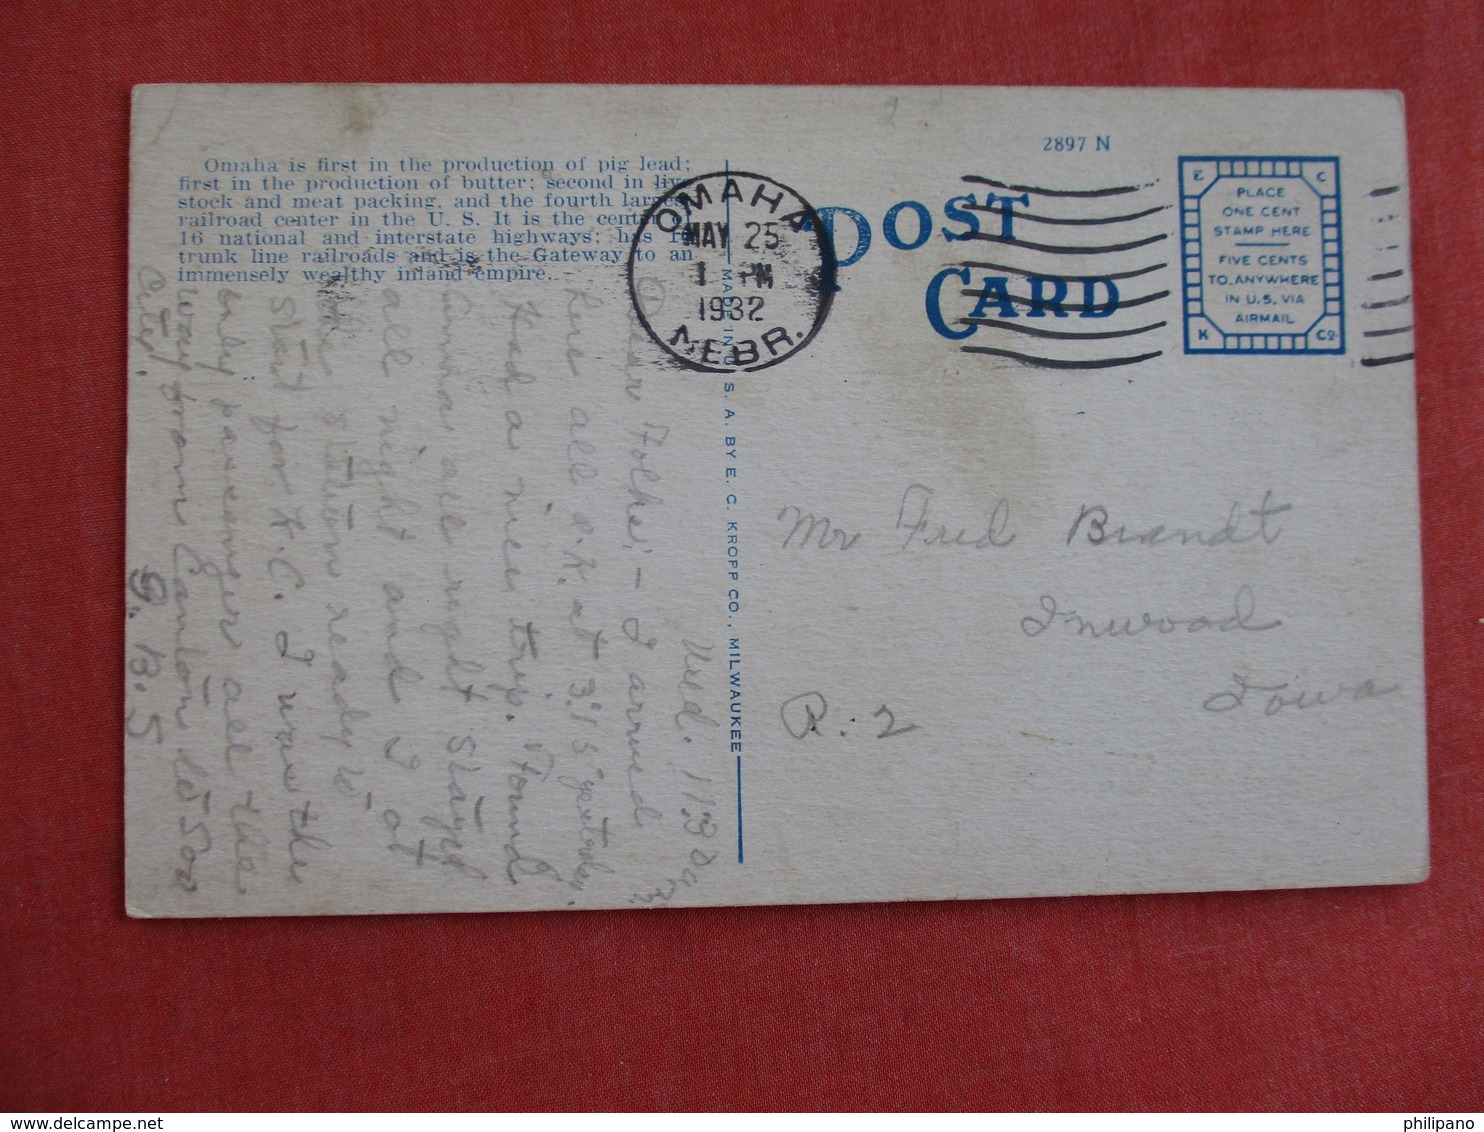 2897 N
Omaha is first in the production of pig lead;
first in the production of butter; second in live
stock and meat packing, and the fourth largest
railroad center in the U. S. It is the center of
16 national and interstate highways; has
trunk line railroads and is the Gateway to an
immensely wealthy inland empire.
OMAHA
MAY 25
1 PM
1932
NEBR.
POST
CARD
E C
PLACE
ONE CENT
STAMP HERE
FIVE CENTS
TO ANYWHERE
IN U.S. VIA
AIRMAIL
K Co
MADE IN U. S. A. BY E. C. KROPP CO., MILWAUKEE
Wed. 11:30 a
Dear Folks:- I arrived
here all O.K. at 3:15 yesterday.
Had a nice trip. Found
Emma all right stayed
all night and I at
the station ready to
start for K.C. I was the
only passenger all the
way from Canton to Sou
City.
G. B. S
Mr Fred Brandt
Inwood
Iowa
R. 2
www.delcampe.net
philipano